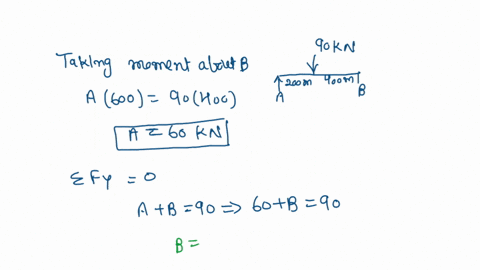 90 KN
Taking moment about B
200m 400m
A B
A (600) = 90 (400)
A = 60 KN
ΣFy = 0
A + B = 90 ⇒ 60 + B = 90
B =